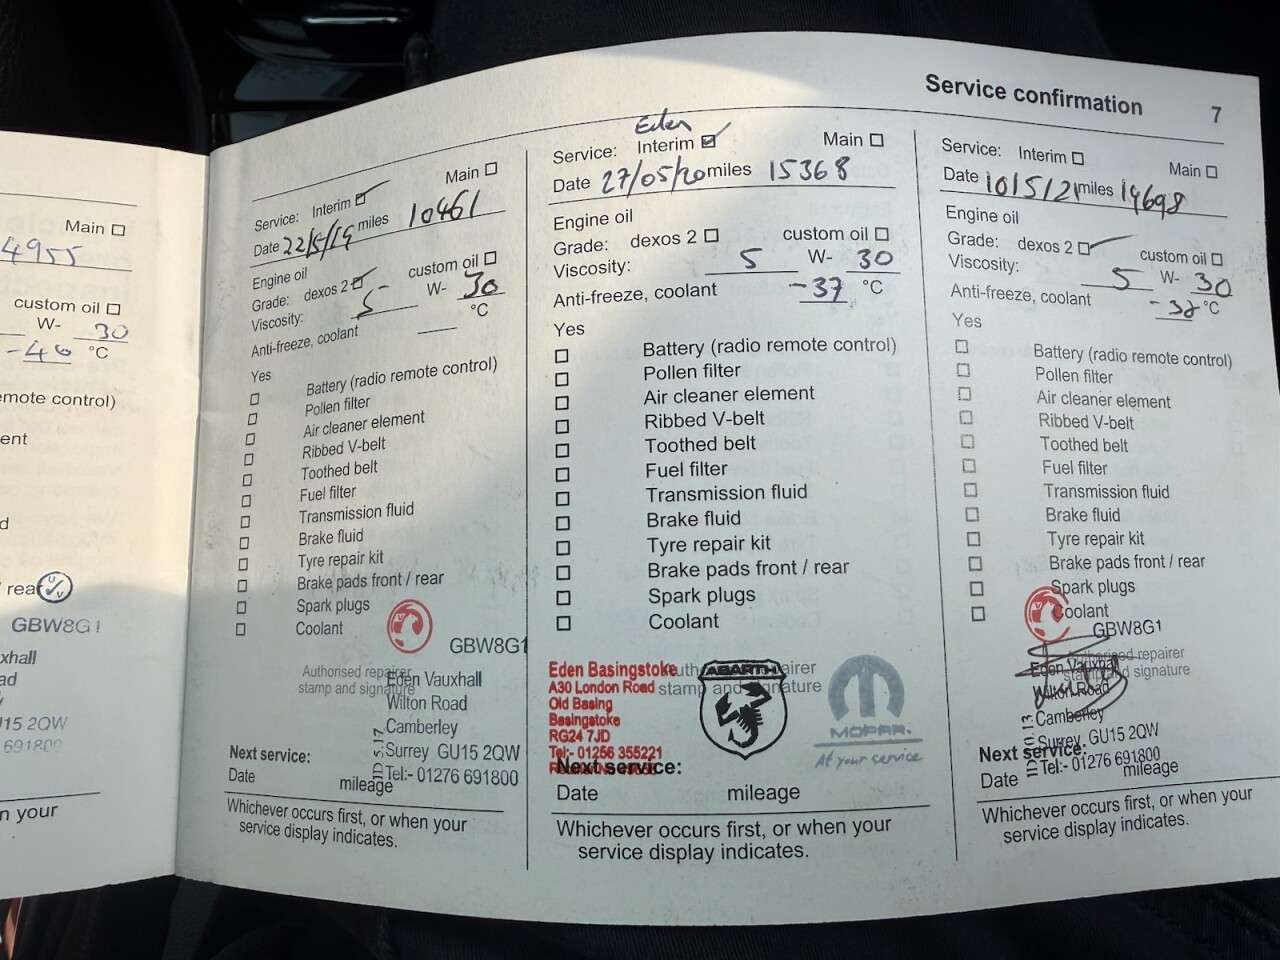 Service confirmation 7
Main
4955
custom oil
W- 30
-40 °C
emote control)
ent
d
/ rear
GBW8G1
xhall
ad
U15 2QW
691800
n your
Service: Interim Main
Date 22/5/19 miles 10461
Engine oil
Grade: dexos 2 custom oil
Viscosity: 5 W- 30
Anti-freeze, coolant °C
Yes
Battery (radio remote control)
Pollen filter
Air cleaner element
Ribbed V-belt
Toothed belt
Fuel filter
Transmission fluid
Brake fluid
Tyre repair kit
Brake pads front / rear
Spark plugs
Coolant
GBW8G1
Authorised repairer
stamp and signature
Eden Vauxhall
Wilton Road
Camberley
Surrey GU15 2QW
Tel:- 01276 691800
Next service:
Date mileage
Whichever occurs first, or when your
service display indicates.
Eden
Service: Interim Main
Date 27/05/20 miles 15368
Engine oil
Grade: dexos 2 custom oil
Viscosity: 5 W- 30
Anti-freeze, coolant -37 °C
Yes
Battery (radio remote control)
Pollen filter
Air cleaner element
Ribbed V-belt
Toothed belt
Fuel filter
Transmission fluid
Brake fluid
Tyre repair kit
Brake pads front / rear
Spark plugs
Coolant
Authorised repairer
stamp and signature
Eden Basingstoke
A30 London Road
Old Basing
Basingstoke
RG24 7JD
Tel:- 01256 355221
ABARTH
MOPAR.
At your service
Next service:
Date mileage
Whichever occurs first, or when your
service display indicates.
Service: Interim Main
Date 10/5/21 miles 19698
Engine oil
Grade: dexos 2 custom oil
Viscosity: 5 W- 30
Anti-freeze, coolant °C
Yes
Battery (radio remote control)
Pollen filter
Air cleaner element
Ribbed V-belt
Toothed belt
Fuel filter
Transmission fluid
Brake fluid
Tyre repair kit
Brake pads front / rear
Spark plugs
Coolant
GBW8G1
Authorised repairer
stamp and signature
Eden Vauxhall
Wilton Road
Camberley
Surrey GU15 2QW
Tel:- 01276 691800
Next service:
Date mileage
Whichever occurs first, or when your
service display indicates.